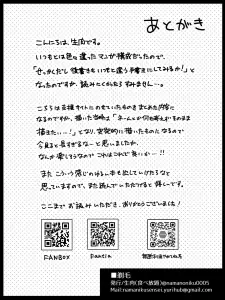 あとがき
こんにちは、生肉です。
いつもとは色々違ったマンガ構成だったので、
「せっかくだし後書きもいつもと違う手書きにしてみるか！」と
なったのですが、読みにくかったらすみません…。
こちらは支援サイトにのせていたものをまとめた内容に
なるのですが、描いた当時は「ネームとか何も考えずそのまま
描きたい…！」となり、突発的に描いたものになるので
今見ると長すぎるなーと思いましたが、
なんか楽しそうなので これはこれで良いか…!!
また こういう感じのゆるい本も出していけたらなと
思っていますので、また読んでいただけると嬉しいです。
ここまで お読みいただき、ありがとうございました！
FANBOX
Fantia
■剃毛
発行/生肉(食べ放題)@namamonikuI0005
Mail:namanikusensei.yurihub@gmail.com